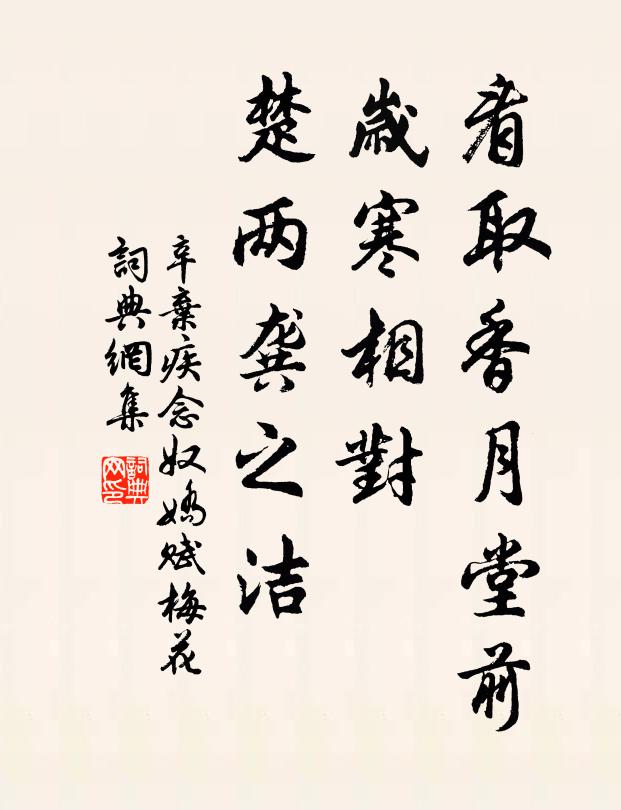 看取香月堂前
歲寒相對
楚两龔之洁
辛棄疾念奴嬌賦梅花
詞典網集
詞典
网印